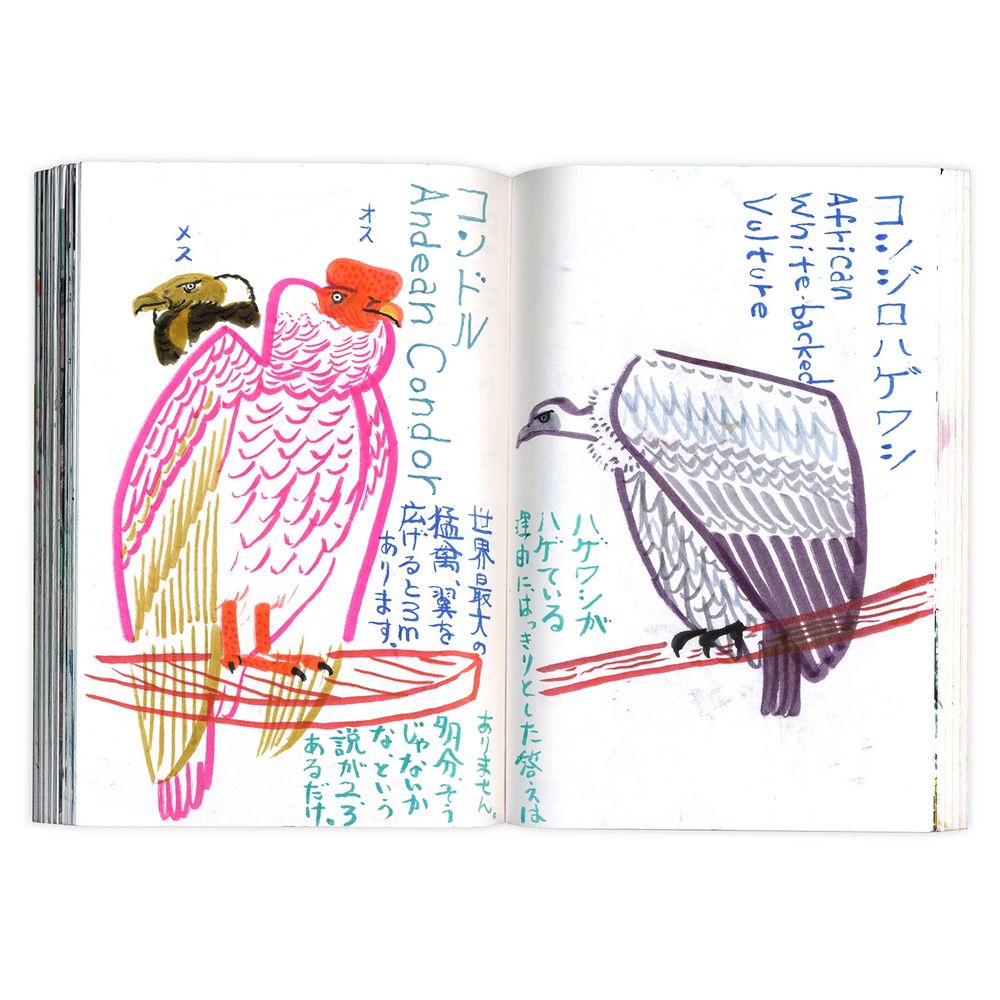 コシジロハゲワシ
African
White-backed
Vulture
ハゲワシが
ハゲている
理由に、はっきりとした答えは
ありません。
多分、そう
じゃないか
な、という
説が2、3
あるだけ。
コンドル
Andean Condor
世界最大の
猛禽、翼を
広げると3m
あります。
オス
メス